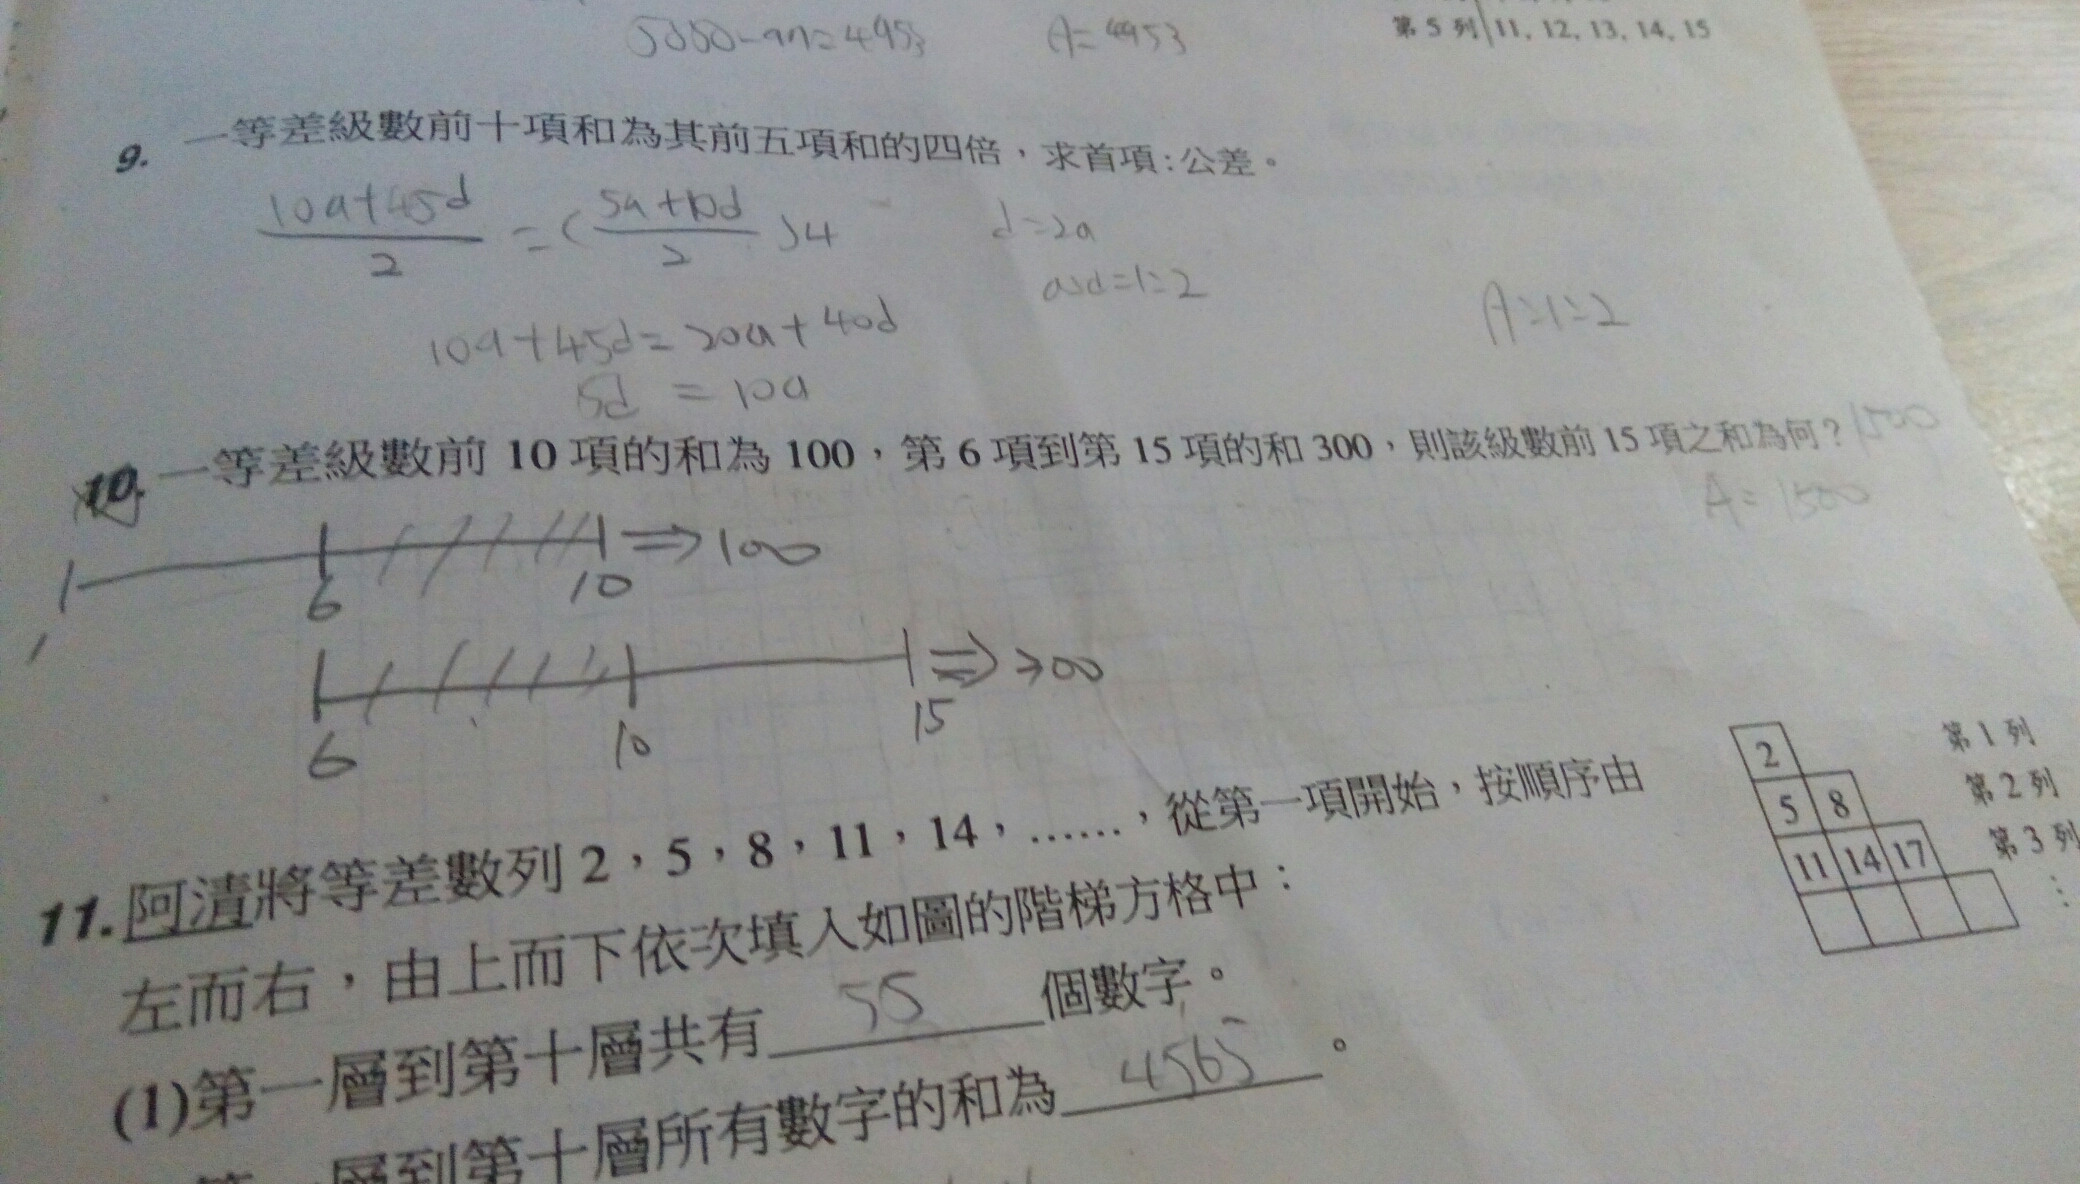 5050-97=4953
A=4953
第5列 11, 12, 13, 14, 15
9. 一等差級數前十項和為其前五項和的四倍，求首項:公差。
10a+45d
2
=(
5a+10d
2
)4
d=2a
a:d=1:2
A=1:2
10a+45d=20a+40d
5d = 10a
10. 一等差級數前 10 項的和為 100，第 6 項到第 15 項的和 300，則該級數前 15 項之和為何？ 1500
A=1500
1 6 10 ⇒100
6 10 15 ⇒300
11.阿漬將等差數列 2，5，8，11，14，……，從第一項開始，按順序由
左而右，由上而下依次填入如圖的階梯方格中：
2 第 1 列
5 8 第 2 列
11 14 17 第 3 列
⋮
(1)第一層到第十層共有 55 個數字。
第一層到第十層所有數字的和為 4565 。